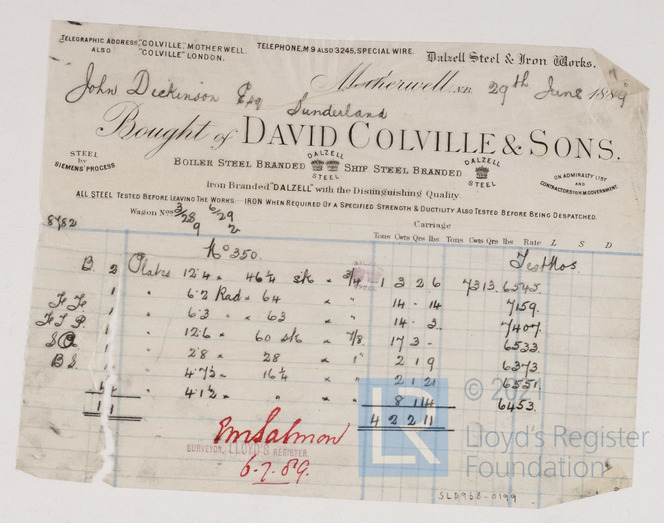 TELEGRAPHIC ADDRESS, "COLVILLE", MOTHERWELL.
ALSO "COLVILLE" LONDON.
TELEPHONE, M 9 ALSO 3245, SPECIAL WIRE.
Dalzell Steel & Iron Works.
Motherwell, N.B. 29th June 1889
John Dickinson Esq
Sunderland
Bought of DAVID COLVILLE & SONS.
STEEL by SIEMENS' PROCESS
BOILER STEEL BRANDED DALZELL STEEL SHIP STEEL BRANDED DALZELL STEEL
ON ADMIRALTY LIST AND CONTRACTORS TO H.M. GOVERNMENT.
Iron Branded "DALZELL" with the Distinguishing Quality.
ALL STEEL TESTED BEFORE LEAVING THE WORKS — IRON WHEN REQUIRED OF A SPECIFIED STRENGTH & DUCTILITY ALSO TESTED BEFORE BEING DESPATCHED.
Wagon Nos 3/28 6/29
9 2
Carriage
Tons Cwts Qrs lbs Tons Cwts Qrs lbs Rate L S D
8782
No 350. Test Nos.
B 2 Plates 12.4 × 46¼ sk × 3/4 1 3 2 6 7313.6545.
1 " 6.2 Rad × 64 × " 14 - 14 7159.
1 " 6.3 " × 63 × " 14 - 3 7407.
1 " 12.6 × 60 sk × 7/8 17 3 - 6533
1 " 2.8 × 28 × 1" 2 1 9 6373.
" 4.7½ × 16¼ × " 2 1 21 6551.
" 4.1½ × " × " 8 1 14 6453.
11 4 2 2 11
E M Salmon
SURVEYOR, LLOYD'S REGISTER.
6.7.89.
LR
© 202
Lloyd's Register
Foundation
SLD968-0199